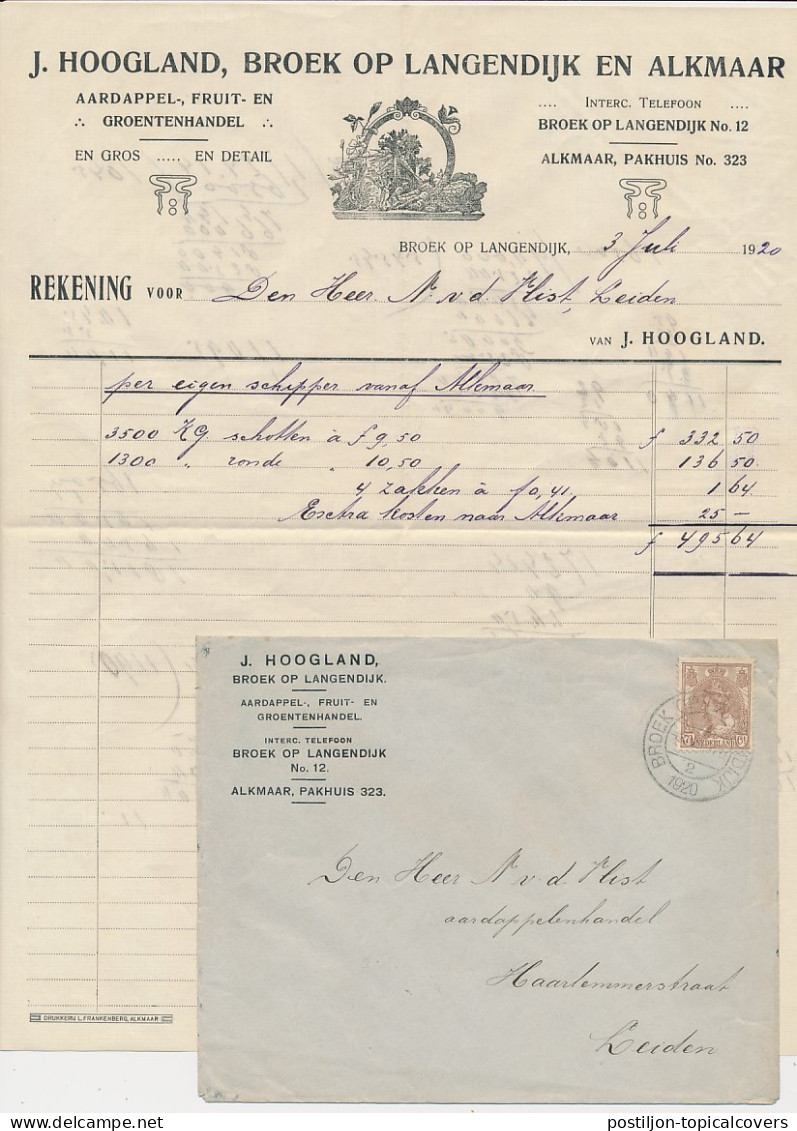 J. HOOGLAND, BROEK OP LANGENDIJK EN ALKMAAR
AARDAPPEL-, FRUIT- EN
GROENTENHANDEL
EN GROS ..... EN DETAIL
.... INTERC. TELEFOON ....
BROEK OP LANGENDIJK No. 12
ALKMAAR, PAKHUIS No. 323
BROEK OP LANGENDIJK, 3 Juli 1920
REKENING VOOR Den Heer N. v. d. Leiden
VAN J. HOOGLAND.
per eigen schipper vanaf Alkmaar
3500 KG schotten à f 9,50 f 332 50
1300 " ronde " 10,50 136 50
4 zakken à f 0,41 1 64
Esctra kosten naar Alkmaar 25 —
f 495 64
J. HOOGLAND,
BROEK OP LANGENDIJK.
AARDAPPEL-, FRUIT- EN
GROENTENHANDEL.
INTERC. TELEFOON
BROEK OP LANGENDIJK
No. 12.
ALKMAAR, PAKHUIS 323.
NEDERLAND
BROEK
DIJK
2
1920
Den Heer N v. d.
aardappelenhandel
Haarlemmerstraat
Leiden
DRUKKERIJ L. FRANKENBERG, ALKMAAR
postiljon-topicalcovers
postiljon-topicalcovers